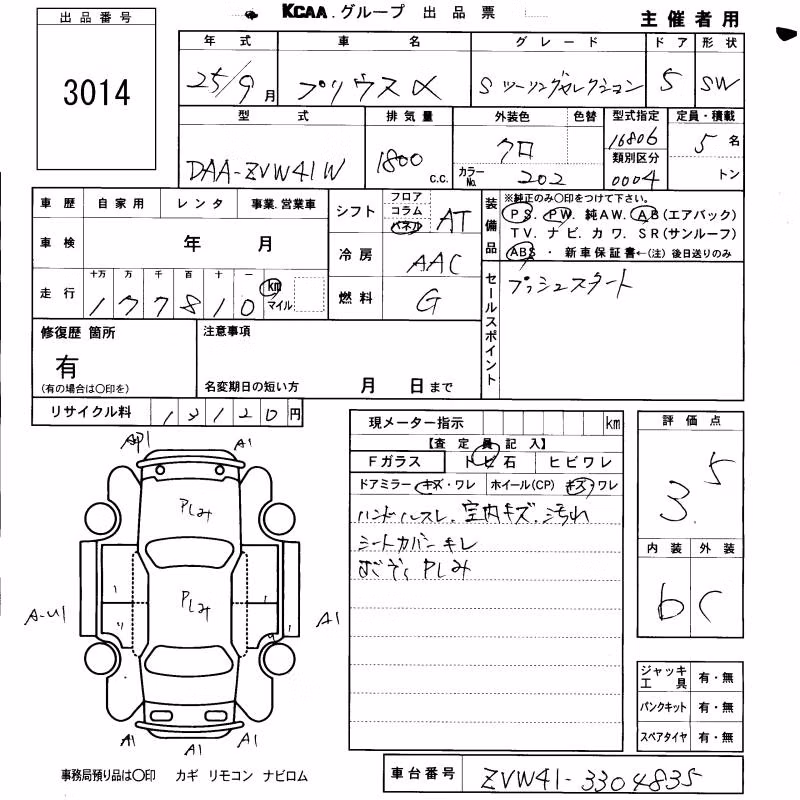 KCAA.グループ 出品票
主催者用
出品番号
3014
年式 車名 グレード ドア 形状
25/9月 プリウスα Sツーリングセレクション 5 SW
型式 排気量 外装色 色替 型式指定 定員・積載
DAA-ZVW41W 1800 c.c. クロ 16806 5名
類別区分
カラーNo. 202 0004 トン
車歴 自家用 レンタ 事業.営業車
シフト フロア コラム パネル AT
装備品 ※純正のみ○印をつけて下さい。
PS. PW. 純AW. AB(エアバック)
TV. ナビ. カワ. SR(サンルーフ)
ABS・新車保証書←(注)後日送りのみ
車検 年 月
冷房 AAC
走行 十万 万 千 百 十 一
177810 km マイル
燃料 G
セールスポイント
プッシュスタート
修復歴 箇所
有
(有の場合は○印を)
注意事項
名変期日の短い方 月 日まで
リサイクル料 13120円
現メーター指示 km
【査定員記入】
Fガラス トビ石 ヒビワレ
ドアミラー キズ・ワレ ホイール(CP) キズ・ワレ
ハンドルスレ、室内キズ、汚れ
シートカバーキレ
Pしみ
評価点
3.5
内装 外装
b C
ジャッキ工具 有・無
パンクキット 有・無
スペアタイヤ 有・無
A1 A1
Pしみ
Pしみ
A-U1 A1
A1 A1 A1
事務局預り品は○印 カギ リモコン ナビロム
車台番号 ZVW41-3304835